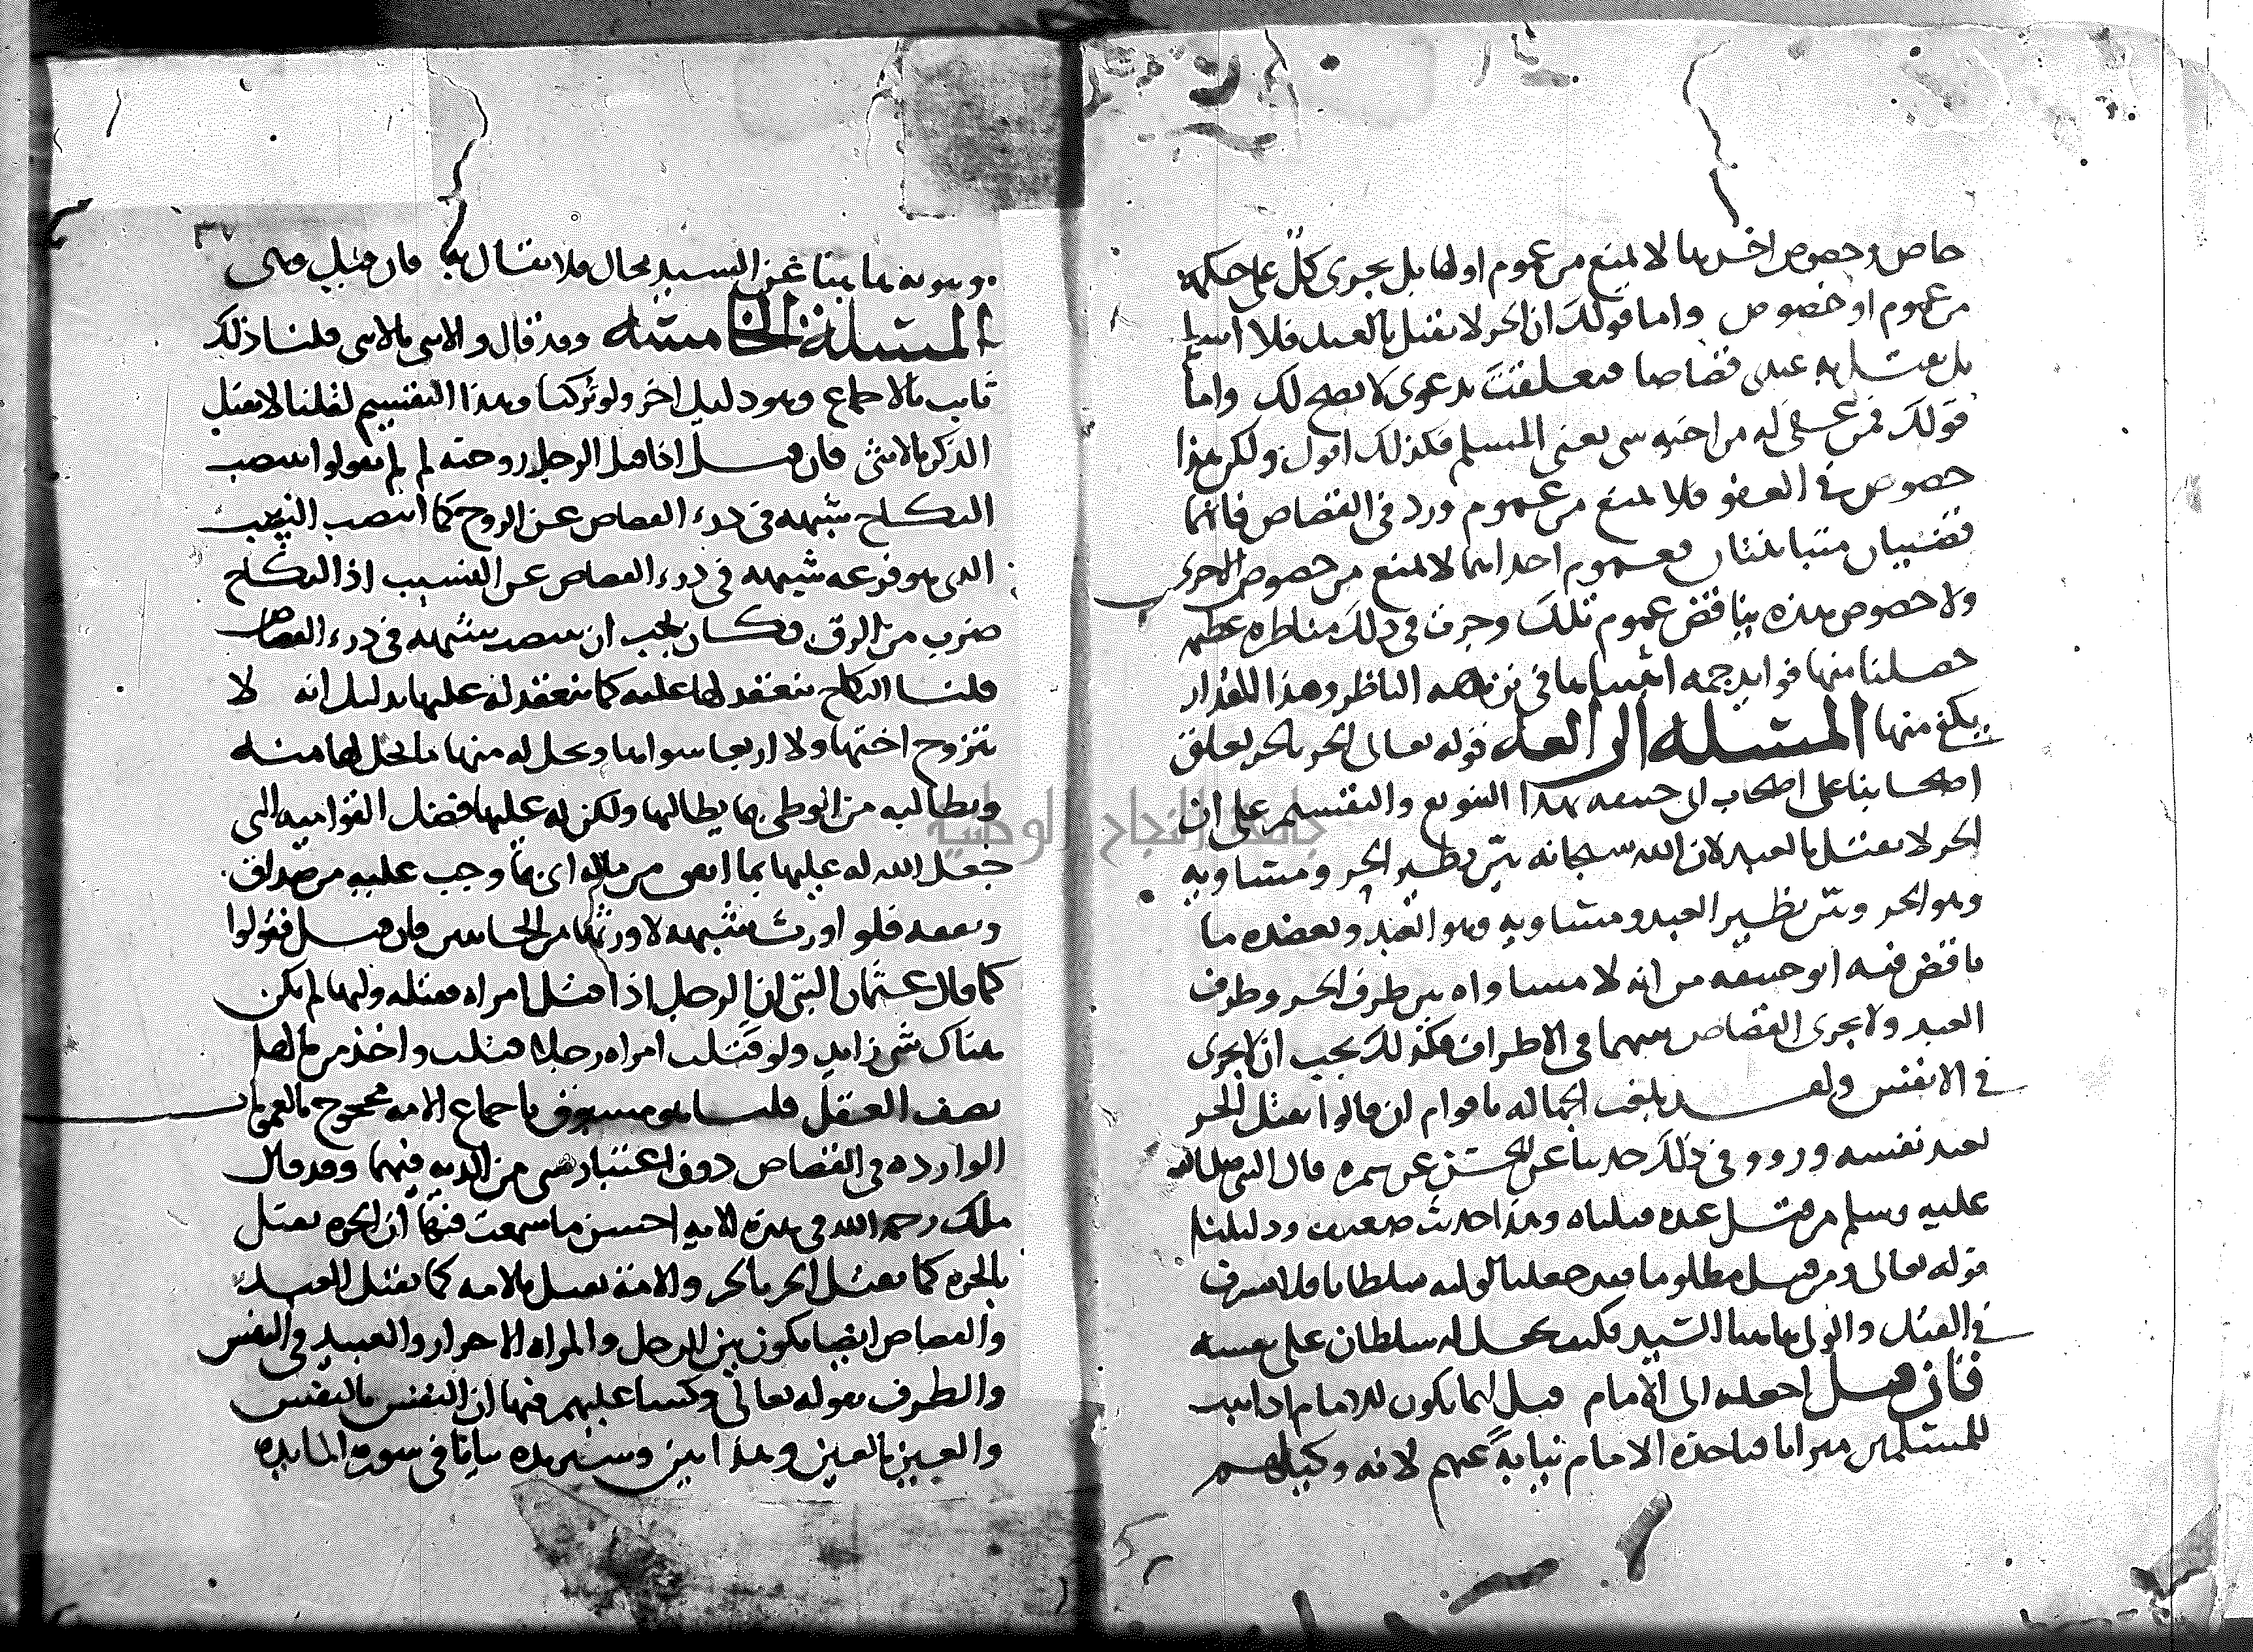 خاص وخصوص اخرها لا يمنع من عموم اولها بل يجرى كل على حكمه
من عموم او خصوص واما قولك ان الحر لا يقتل بالعبد فلا اسلم
بل يقتل به عندى قصاصا فتعلقت بدعوى لا تصح لك واما
قولك فمن عفى له من اخيه شى يعنى المسلم فكذلك اقول ولكن هذا
خصوص فى العفو فلا يمنع من عموم ورد فى القصاص فانهما
قضيتان متباينتان فعموم احداهما لا يمنع من خصوص الاخرى
ولا خصوص هذه يناقض عموم تلك وجرت فى ذلك مناظره عظيمه
حصلنا منها فوايد جمه اثبتناها فى نزهه الناظر وهذا المقدار
يكفى منها المسله الرابعه قوله تعالى الحر بالحر تعلق
اصحابنا على اصحاب ابى حنيفه بهذا التنويع والتقسيم على ان
الحر لا يقتل بالعبد لان الله سبحانه بين نظير الحر ومساويه
وهو الحر وبين نظير العبد ومساويه وهو العبد ويعضده ما
ناقض فيه ابو حنيفه من انه لا مساواه بين طرف الحر وطرف
العبد ولا يجرى القصاص بينهما فى الاطراف فكذلك يجب ان لا يجرى
فى الانفس ولقد بلغت الجهاله باقوام ان قالوا يقتل الحر
بعبد نفسه ورووا فى ذلك حديثا عن الحسن عن سمره قال النبى صلى الله
عليه وسلم من قتل عبده قتلناه وهذا حديث ضعيف ودليلنا
قوله تعالى ومن قتل مظلوما فقد جعلنا لوليه سلطانا فلا يسرف
فى القتل والولى هاهنا السيد فكيف يجعل له سلطان على نفسه
فان قيل اجعله الى الامام قيل انما يكون للامام اذا ثبت
للمسلمين ميراثا فياخذه الامام نيابة عنهم لانه وكيلهم
وهو به هاهنا عن السيد محال فلا يقال به فان قيل وهى
المسله الخامسه وقد قال والانثى بالانثى قلنا ذلك
ثابت بالاجماع وهو دليل اخر ولو تركنا وهذا التقسيم لقلنا لا يقتل
الذكر بالانثى فان قيل اذا قتل الرجل زوجته لم لم تقولوا ينتصب
النكاح شبهه فى درء القصاص عن الزوج كما انتصب النسب
الذى هو فرعه شبهه فى درء القصاص عن النسيب اذ النكاح
ضرب من الرق فكان يجب ان ينتصب شبهه فى درء القصاص
قلنا النكاح ينعقد لها عليه كما ينعقد له عليها بدليل انه لا
يتزوج اختها ولا اربعا سواها ويحل له منها ما يحل لها منه
وتطالبه من الوطى بما يطالبها ولكن له عليها فضل القواميه التى
جعل الله له عليها بما انفق من ماله اى بما وجب عليه من صداق
ونفقه فلو اورث شبهه لاورثها من الجانبين فان قيل فقولوا
كما قال عثمان البتى ان الرجل اذا قتل امراه فقتله وليها لم يكن
هناك شى زايد ولو قتلت امراه رجلا قتلت واخذ من مالها
نصف العقل قلنا هو مسبوق باجماع الامه محجوج بالعمومات
الوارده فى القصاص دون اعتبار شى من الديه فيهما وقد قال
ملك رحمه الله فى هذه الايه احسن ما سمعت فيها ان الحره تقتل
بالحره كما يقتل الحر بالحر والامه تقتل بالامه كما يقتل العبد
والقصاص ايضا يكون بين الرجل والمراه الاحرار والعبيد فى النفس
والطرف بقوله تعالى وكتبنا عليهم فيها ان النفس بالنفس
والعين بالعين وهذا بين وسنزيده بيانا فى سوره المايده